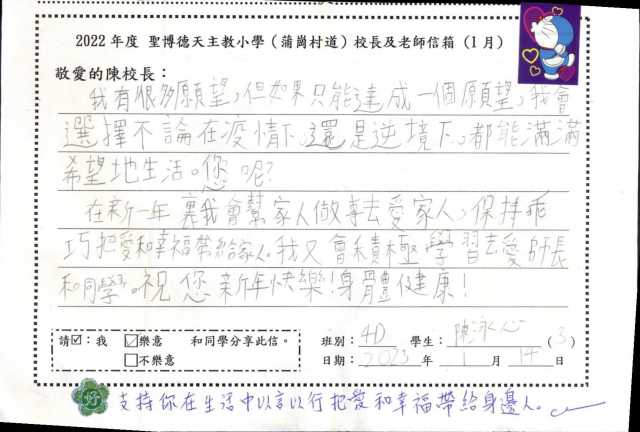 2022 年度 聖博德天主教小學（蒲崗村道）校長及老師信箱（1月）
敬愛的陳校長：
我有很多願望,但如果只能達成一個願望,我會
選擇不論在疫情下,還是逆境下,都能滿滿
希望地生活。您呢?
在新一年裏我會幫家人做事去愛家人,保持乖
巧把愛和幸福帶給家人。我又會積極學習去愛師長
和同學。祝您新年快樂!身體健康!
請☑：我 ☑樂意 和同學分享此信。
□不樂意
班別：4D 學生：陳泳心 (3)
日期：2023 年 1 月 14 日
好 支持你在生活中以言以行把愛和幸福帶給身邊人。